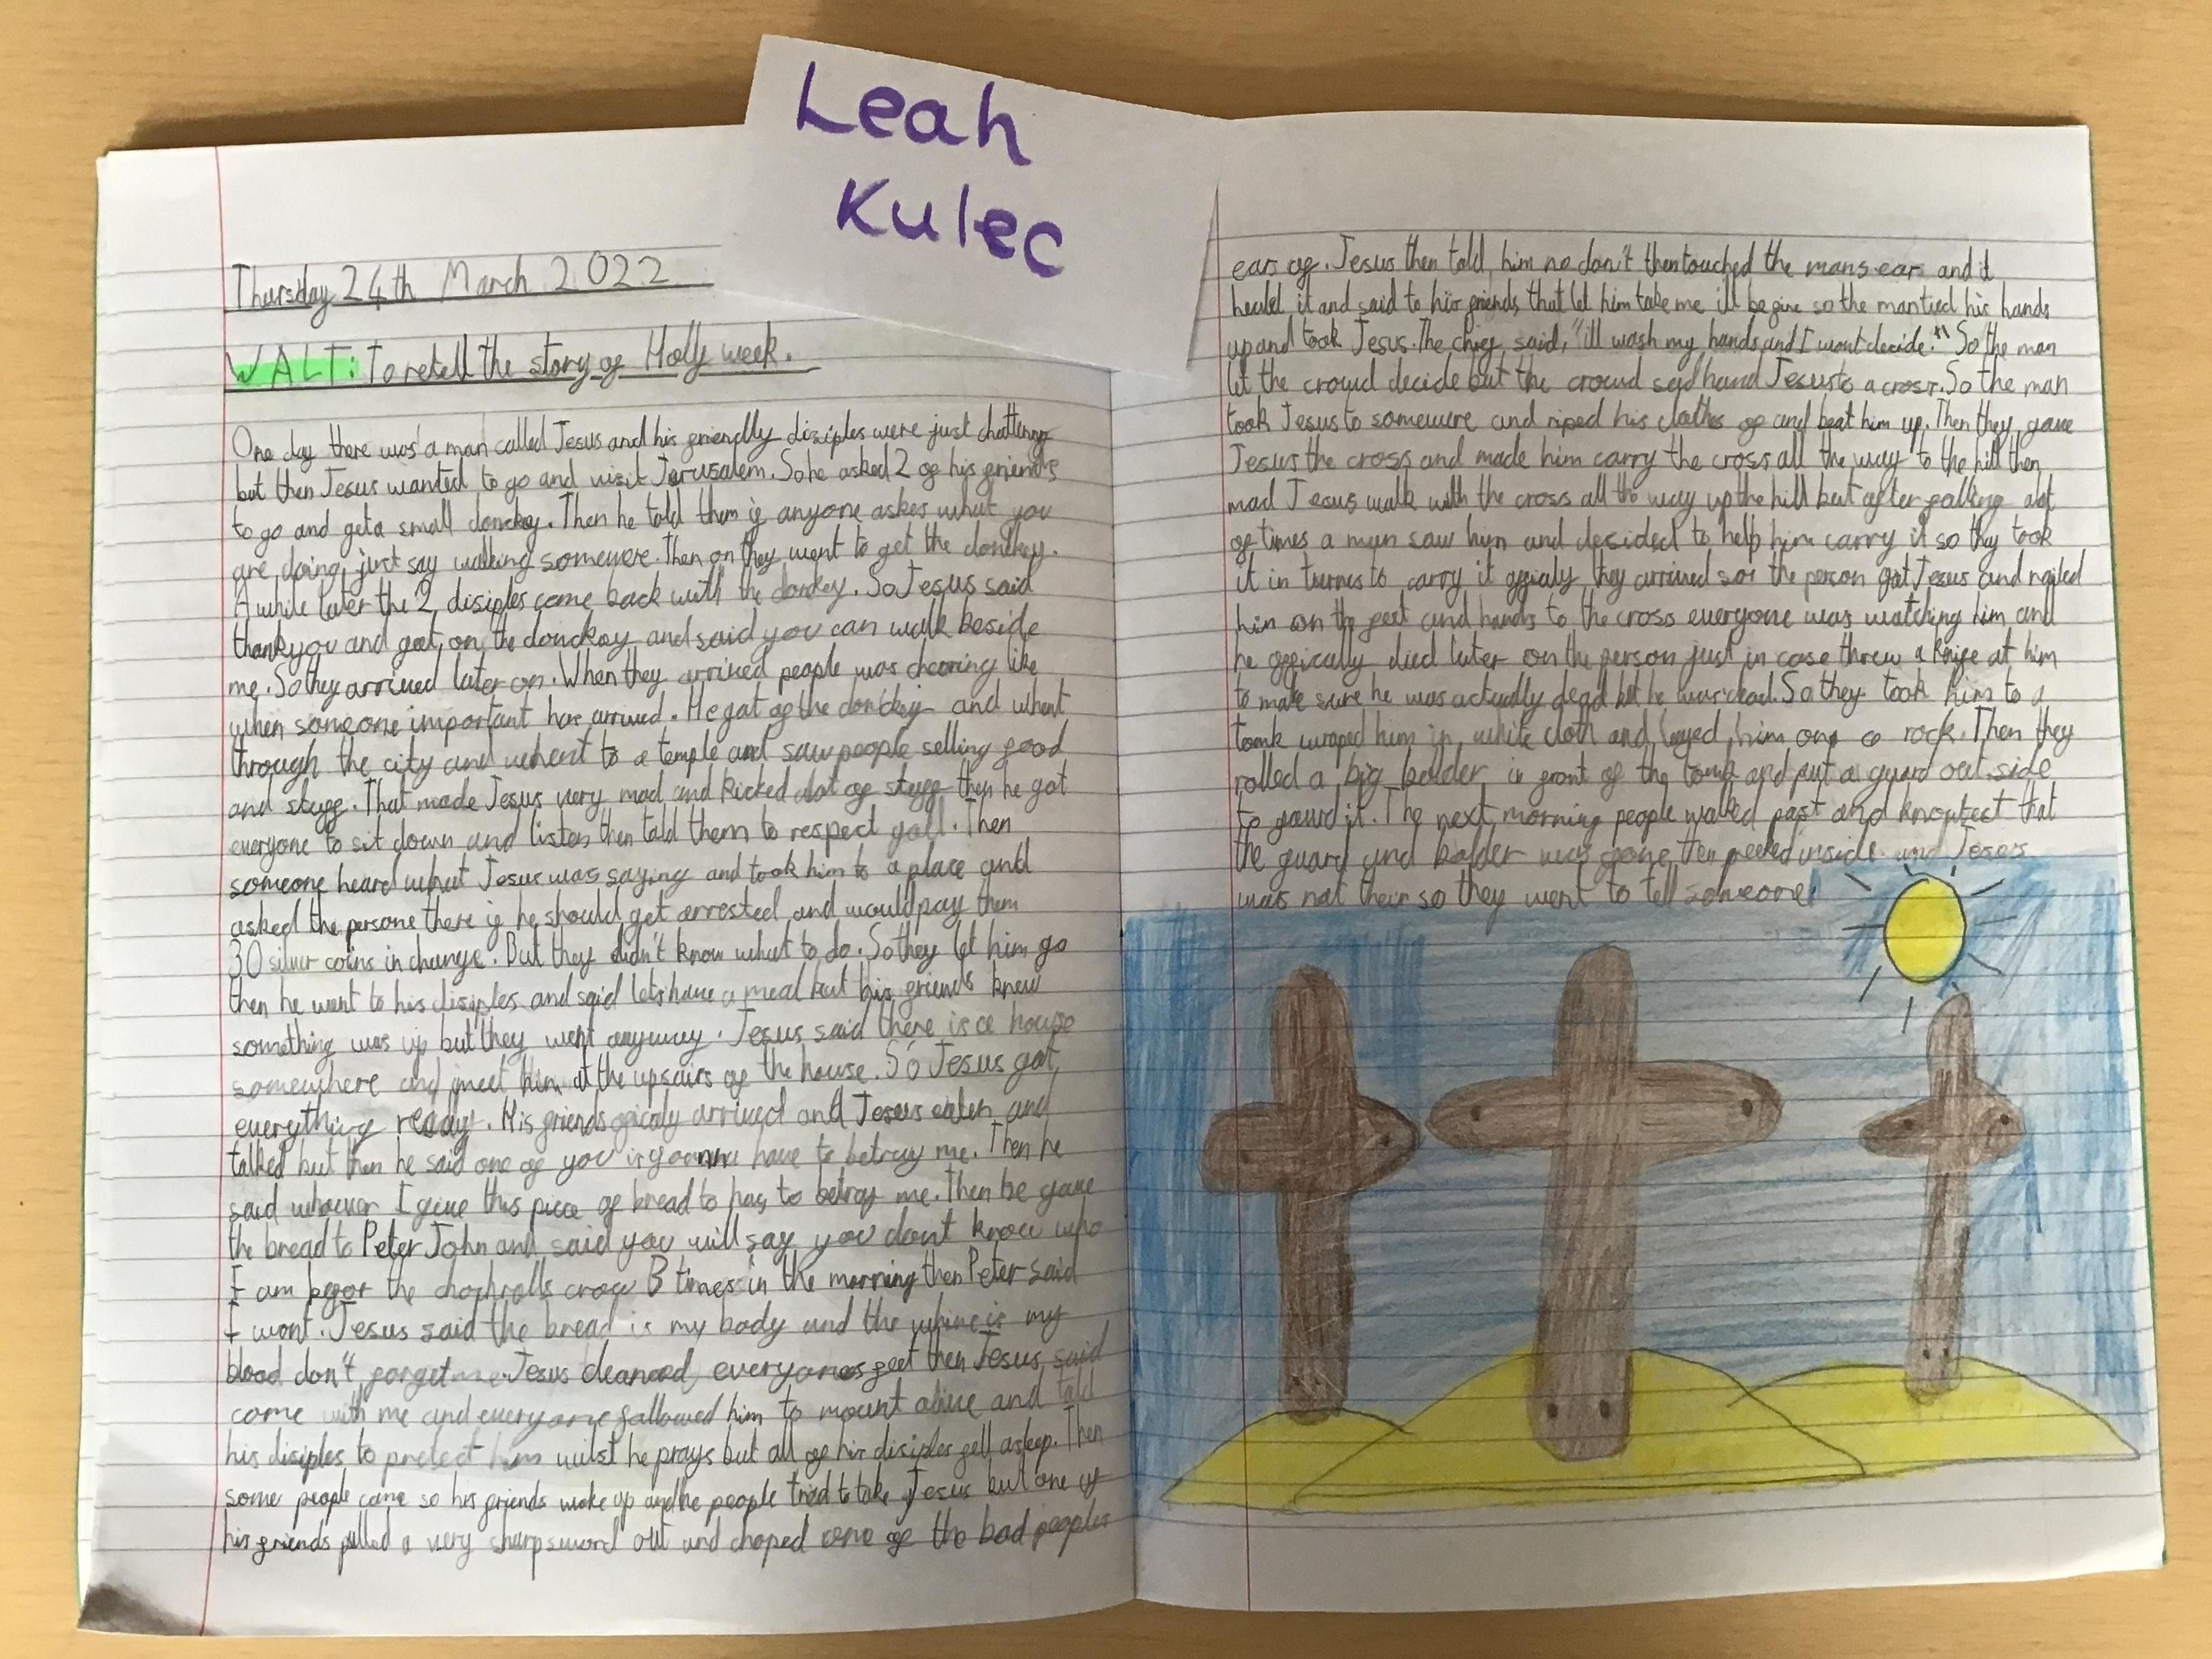 Leah
Kulec
Thursday 24th March 2022
WALT: To retell the story of Holly week.
One day there was a man called Jesus and his friendly disiples were just chatting
but then Jesus wanted to go and visit Jerusalem. So he asked 2 of his friends
to go and get a small donckey. Then he told them if anyone askes what you
are doing just say walking somewere. Then on they went to get the donckey.
A while later the 2 disiples come back with the donkey. So Jesus said
thankyou and got on the donckay and said you can walk beside
me. So they arrived later on. When they arrived people was cheering like
when someone important has arrived. He got of the donckey and whent
through the city and whent to a temple and saw people selling food
and stuff. That made Jesus very mad and kicked alot of stuff then he got
everyone to sit down and listen then told them to respect
Then
someone heard what Jesus was saying and took him to a place and
asked the persone there if he should get arrested and would pay them
30 silver coins in change. But they didn't know what to do. So they let him go
then he went to his disiples and said lets have a meal but his friends knew
something was up but they went anyway. Jesus said there is a house
somewhere and meet him at the upsairs of the house. So Jesus got
everything ready. His friends arrived and Jesus and
talked but then he said one of you is gonna have to betray me. Then he
said whoever I give this piece of bread to has to betray me. Then he gave
the bread to Peter John and said you will say you dont know who
I am the crow 3 times in the morning then Peter said
I wont. Jesus said the bread is my body and the whine is my
blood don't forget me. Jesus cleaned everyones feet then Jesus said
come with me and everyone followed him to mount olive and told
his disiples to protect him wilst he prays but all of his disiples fell asleep. Then
some people came so his friends woke up and the people tried to take Jesus but one of
his friends pulled a very sharp sword out and choped one of the bad peoples
ear of. Jesus then told him no don't then touched the mans ear and it
healed it and said to his friends that let him take me ill be fine so the man tied his hands
up and took Jesus. The chief said, "ill wash my hands and I wont decide." So the man
let the crowd decide but the crowd said hand Jesus to a cross. So the man
took Jesus to somewere and riped his clothes of and beat him up. Then they gave
Jesus the cross and made him carry the cross all the way to the hill then
mad Jesus walk with the cross all the way up the hill but after falling alot
of times a man saw him and decided to help him carry it so they took
it in turnes to carry it they arrived so the person got Jesus and nailed
him on the feet and hands to the cross everyone was watching him and
he died later on the person just in case threw a knife at him
to make sure he was actually dead but he was dead. So they took him to a
tomb wraped him in white cloth and layed him on a rock. Then they
rolled a big bolder in front of the tomb and put a guard out side
to it. The next morning people walked past and that
the guard and bolder was gone then peeked inside and Jesus
was not their so they went to tell someone!